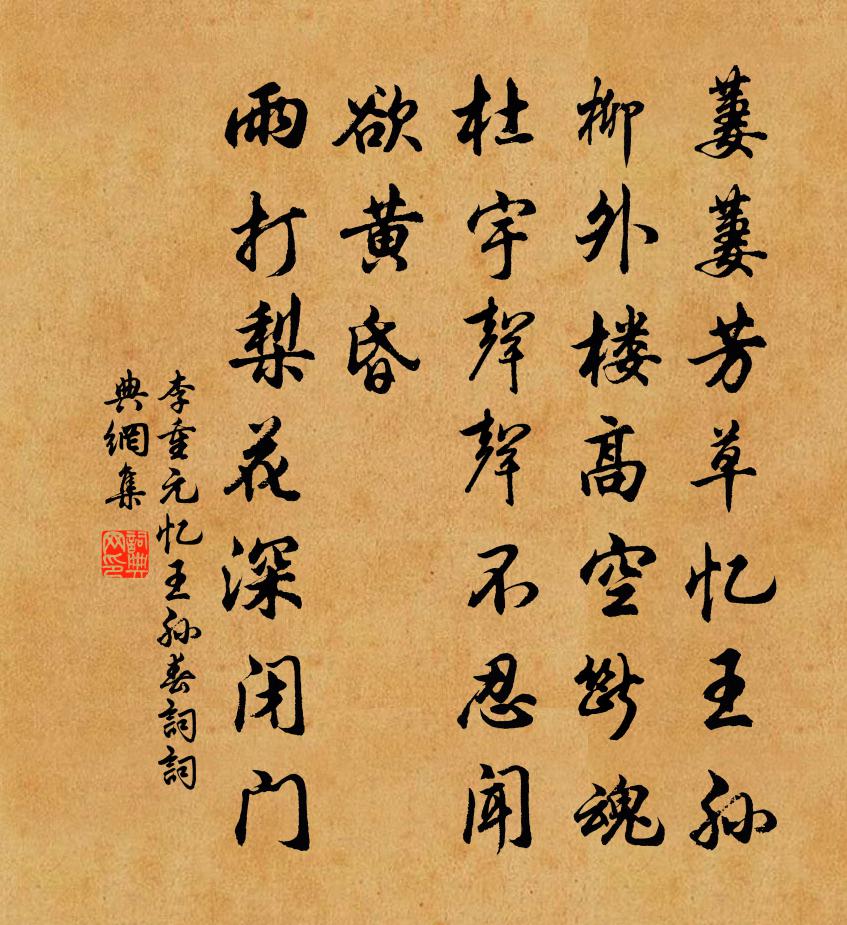 萋萋芳草忆王孙
柳外楼高空断魂
杜宇聲聲不忍闻
欲黄昏
雨打梨花深闭门
李重元忆王孙春詞詞
典網集
詞典网印